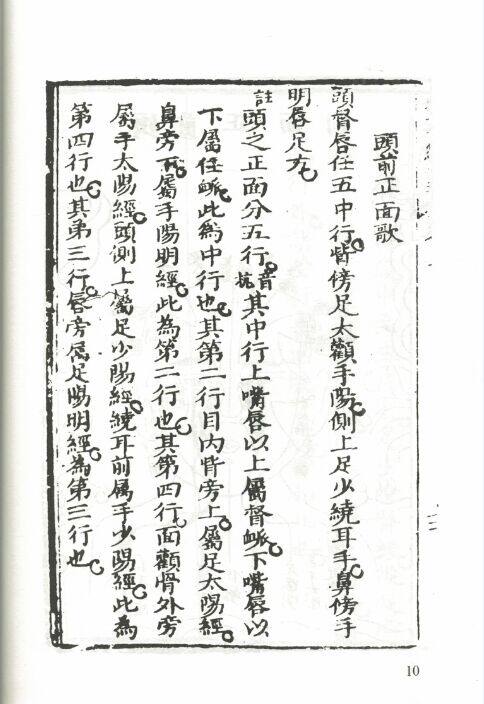 頭前正面歌
頭督唇任五中行。眥傍足太顴手陽。側上足少繞耳手。鼻傍手
明唇足方。
註
頭之正面分五行。音杭其中行上嘴唇以上屬督脈。下嘴唇以
下屬任脈。此為中行也。其第二行目內眥旁上。屬足太陽經。
鼻旁下。屬手陽明經。此為第二行也。其第四行面顴骨外旁
屬手太陽經。頭側上屬足少陽經。繞耳前屬手少陽經。此為
第四行也。其第三行。唇旁屬足陽明經。為第三行也。
10